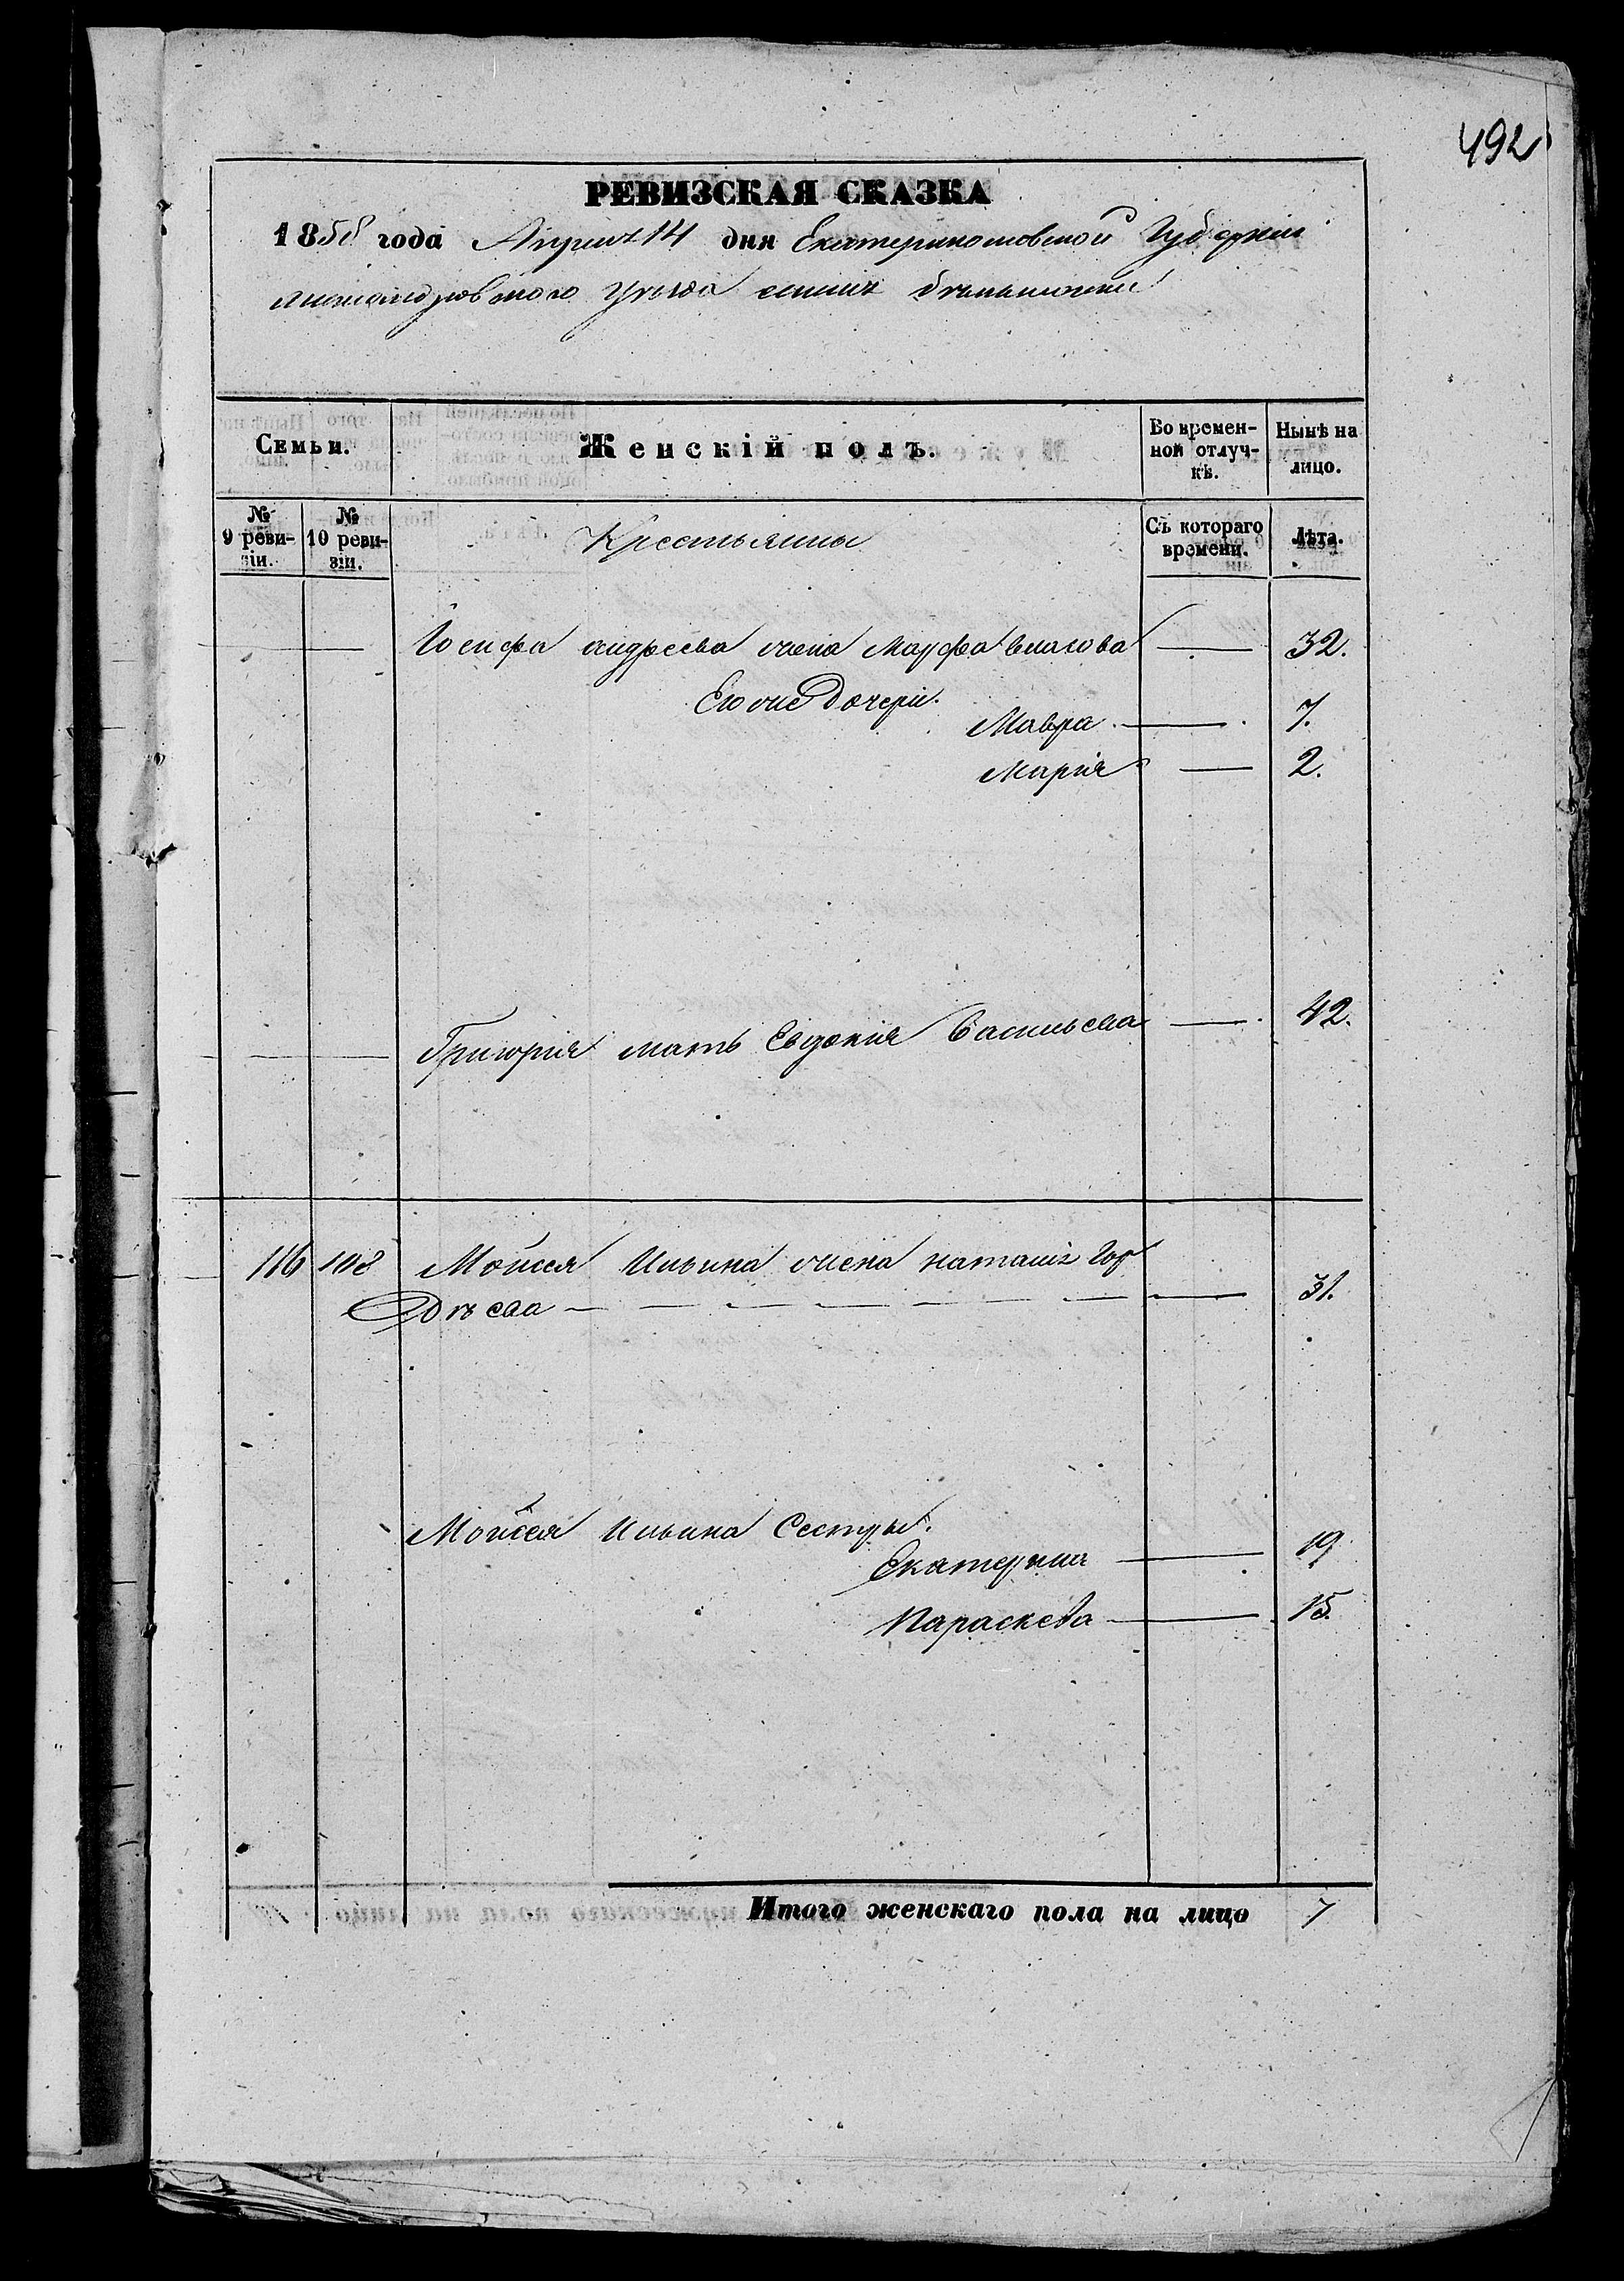 492
РЕВИЗСКАЯ СКАЗКА
1858 года Апреля 14 дня Екатеринославской Губернии
Александровского уезда
Семьи.
Женскій полъ.
Во времен-
ной отлуч-
кѣ.
Нынѣ на
лицо.
№
9 реви-
зіи.
№
10 реви-
зіи.
Крестьянны
Съ котораго
времени.
Лѣта.
Іосифа андреева жена Марфа власова 32.
Его же дочери.
Мавра 7.
Марія 2.
Григорія мать Евдокія Васильева 42.
116 108 Мойсея Ильина жена наталія Гор
деева 31.
Мойсея Ильина Сестры.
Екатерина 19
Параскева 15.
Итого женскаго пола на лицо 7